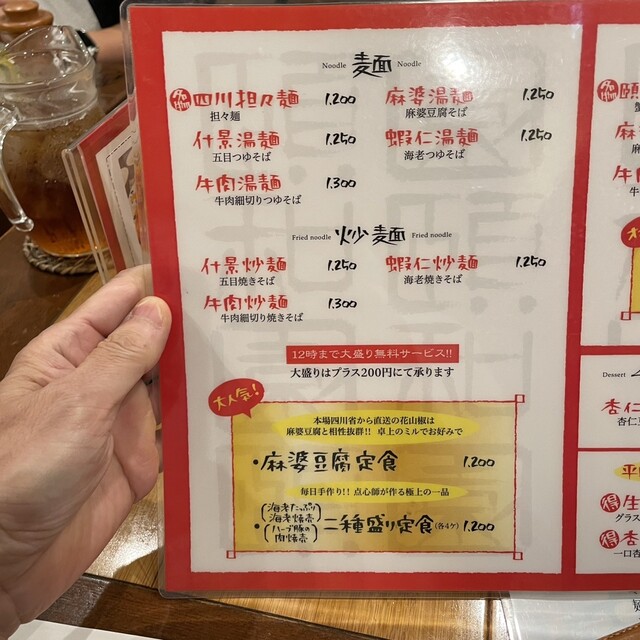 Noodle 麺 Noodle
名物 四川担々麺 1.200
担々麺
麻婆湯麺 1.250
麻婆豆腐そば
什景湯麺 1.250
五目つゆそば
蝦仁湯麺 1.250
海老つゆそば
牛肉湯麺 1.300
牛肉細切りつゆそば
Fried noodle 炒麺 Fried noodle
什景炒麺 1.250
五目焼きそば
蝦仁炒麺 1.250
海老焼きそば
牛肉炒麺 1.300
牛肉細切り焼きそば
12時まで大盛り無料サービス!!
大盛りはプラス200円にて承ります
大人気!
本場四川省から直送の花山椒は
麻婆豆腐と相性抜群!! 卓上のミルでお好みで
・麻婆豆腐定食 1.200
毎日手作り!! 点心師が作る極上の一品
・(海老たっぷり海老焼売)(ハーブ豚の肉焼売)二種盛り定食(各4ケ) 1.200
Dessert
杏仁
杏仁豆
得 生
グラス
得 杏
一口杏